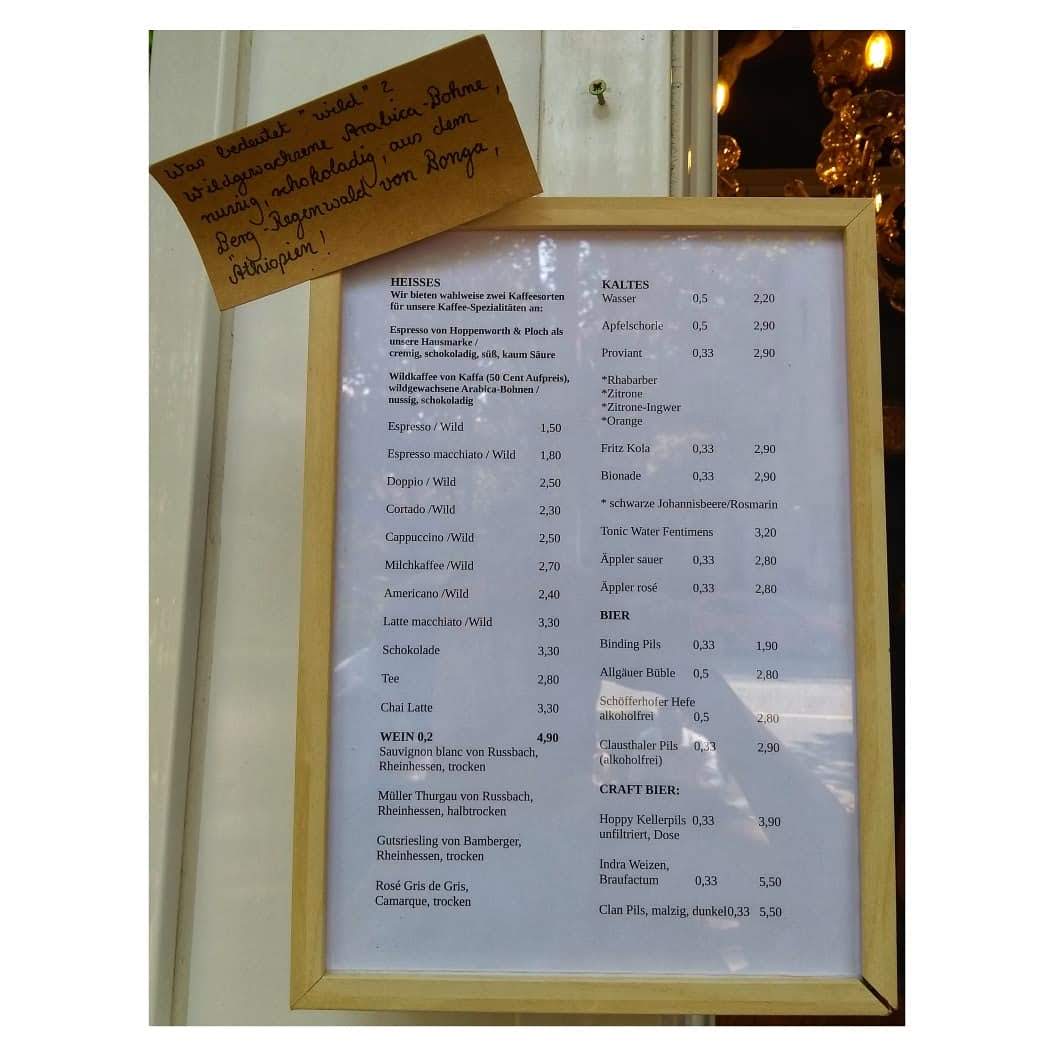 Was bedeutet "wild"?
Wildgewachsene Arabica-Bohne,
nussig, schokoladig, aus dem
Berg-Regenwald von Bonga,
Äthiopien!
HEISSES
Wir bieten wahlweise zwei Kaffeesorten
für unsere Kaffee-Spezialitäten an:
Espresso von Hoppenworth & Ploch als
unsere Hausmarke /
cremig, schokoladig, süß, kaum Säure
Wildkaffee von Kaffa (50 Cent Aufpreis),
wildgewachsene Arabica-Bohnen /
nussig, schokoladig
Espresso / Wild 1,50
Espresso macchiato / Wild 1,80
Doppio / Wild 2,50
Cortado /Wild 2,30
Cappuccino /Wild 2,50
Milchkaffee /Wild 2,70
Americano /Wild 2,40
Latte macchiato /Wild 3,30
Schokolade 3,30
Tee 2,80
Chai Latte 3,30
WEIN 0,2 4,90
Sauvignon blanc von Russbach,
Rheinhessen, trocken
Müller Thurgau von Russbach,
Rheinhessen, halbtrocken
Gutsriesling von Bamberger,
Rheinhessen, trocken
Rosé Gris de Gris,
Camarque, trocken
KALTES
Wasser 0,5 2,20
Apfelschorle 0,5 2,90
Proviant 0,33 2,90
*Rhabarber
*Zitrone
*Zitrone-Ingwer
*Orange
Fritz Kola 0,33 2,90
Bionade 0,33 2,90
* schwarze Johannisbeere/Rosmarin
Tonic Water Fentimens 3,20
Äppler sauer 0,33 2,80
Äppler rosé 0,33 2,80
BIER
Binding Pils 0,33 1,90
Allgäuer Büble 0,5 2,80
Schöfferhofer Hefe
alkoholfrei 0,5 2,80
Clausthaler Pils 0,33 2,90
(alkoholfrei)
CRAFT BIER:
Hoppy Kellerpils 0,33 3,90
unfiltriert, Dose
Indra Weizen,
Braufactum 0,33 5,50
Clan Pils, malzig, dunkel0,33 5,50